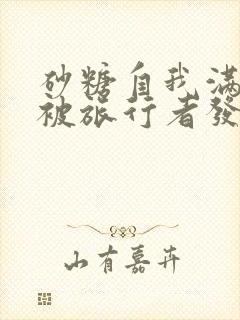 砂糖自我滿
被旅行者發
山有嘉卉